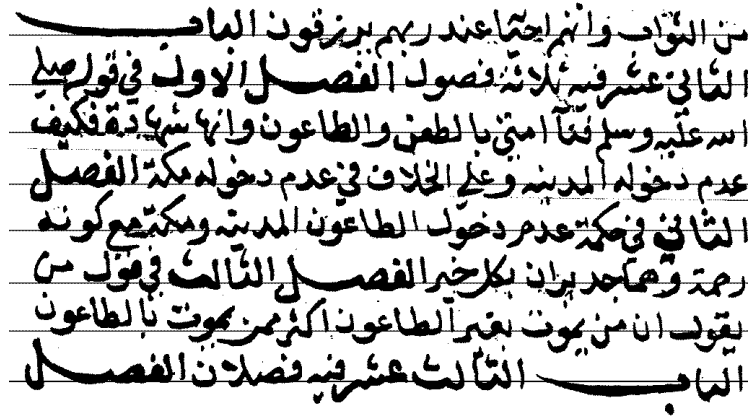 من الثواب وانهم احيا عند ربهم يرزقون الباب
الثاني عشر فيه ثلاثة فصول الفصل الاول في قوله صلى
الله عليه وسلم فنا امتي بالطعن والطاعون وانها شهادة فكيف
عدم دخوله المدينه وعلى الخلاف في عدم دخوله مكة الفصل
الثاني في حكمة عدم دخول الطاعون المدينه ومكة مع كونه
رحمة وهما جديران بكل خير الفصل الثالث في قول من
يقول ان من يموت بغير الطاعون اكثر ممن يموت بالطاعون
الباب الثالث عشر فيه فصلان الفصل